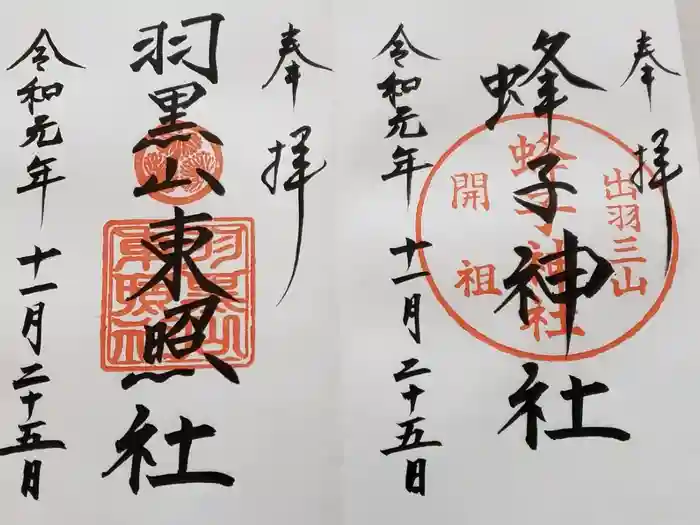 奉拝
出羽三山
蜂子神社
蜂子神社
開祖
令和元年十一月二十五日
奉拝
羽黒山東照社
羽黒山東照社
令和元年十一月二十五日